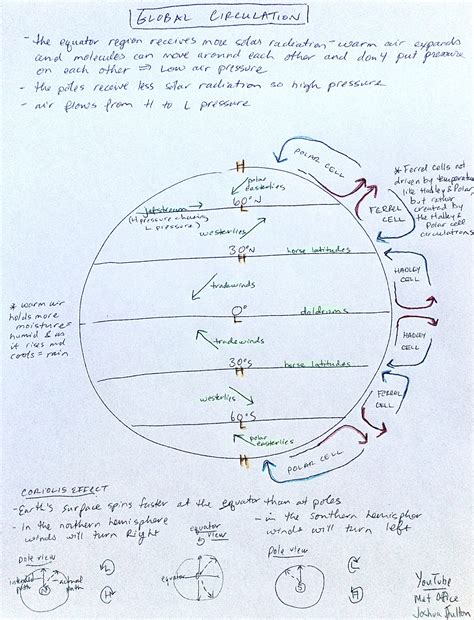 GLOBAL CIRCULATION
- the equator region receives more solar radiation - warm air expands
and molecules can move around each other and don't put pressure
on each other ⇒ Low air pressure
- the poles receive less solar radiation so high pressure
- air flows from H to L pressure
H
polar
easterlies
60°N
L
Jetstream
(H pressure chasing
L pressure)
westerlies
30°N
H
horse latitudes
tradewinds
0°
L
doldrums
tradewinds
30°S
H
horse latitudes
westerlies
60°S
L
polar
easterlies
H
POLAR CELL
FERREL
CELL
HADLEY
CELL
HADLEY
CELL
FERREL
CELL
POLAR CELL
* Ferrel cells not
driven by temperature
like Hadley & Polar,
but rather
created by
the Hadley &
Polar cell
circulations
* warm air
holds more
moisture =
humid & as
it rises and
cools = rain
CORIOLIS EFFECT
- Earth's surface spins faster at the equator than at poles
- in the northern hemisphere
winds will turn Right
equator
view
- in the southern hemispher
winds will turn left
pole view
intended
path
actual
path
N
L
H
equator
pole view
S
L
H
YouTube
Met Office
Joshua